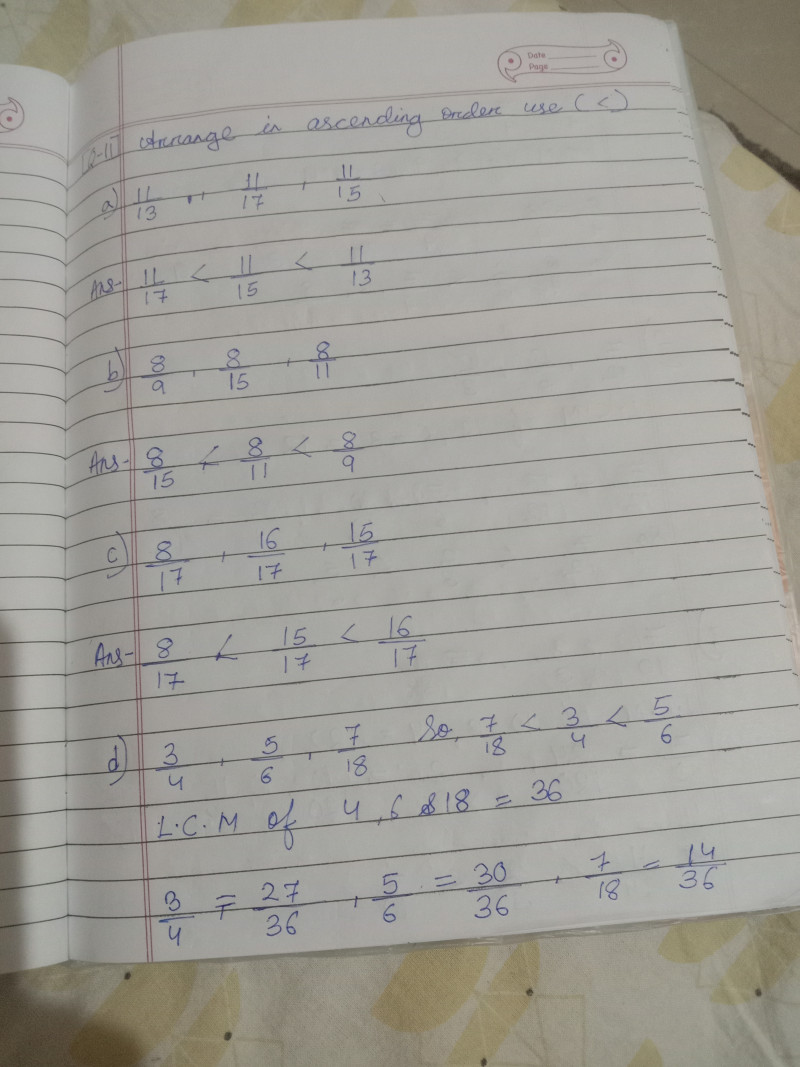 Date
Page
Q-11] Arrange in ascending order use (<)
a) 11/13 , 11/17 , 11/15
Ans- 11/17 < 11/15 < 11/13
b) 8/9 , 8/15 , 8/11
Ans- 8/15 < 8/11 < 8/9
c) 8/17 , 16/17 , 15/17
Ans- 8/17 < 15/17 < 16/17
d) 3/4 , 5/6 , 7/18 So, 7/18 < 3/4 < 5/6
L.C.M of 4, 6 & 18 = 36
3/4 = 27/36 , 5/6 = 30/36 , 7/18 = 14/36